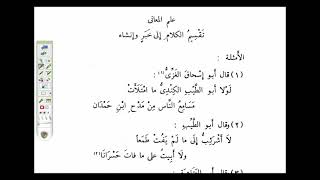 علم المعانى
تَقْسِيمُ الكلام إلى خَبَرٍ وإنشاء
الأمثلة :
(١) قال أبو إسْحاقَ الغَزِّىُّ (١) :
لَوْلا أبُو الطَّيِّبِ الكِنْدِىُّ ما امْتَلَأَتْ
مَسَامِعُ النَّاسِ مِنْ مَدْحِ ابْنِ حَمْدَان
(٢) وقال أبو الطَّيِّب :
لاَ أَشْرَئِبُّ إلَى مَا لَمْ يَفُتْ طَمَعاً
ولاَ أَبِيتُ على ما فاتَ حَسْرَانَا (٢)